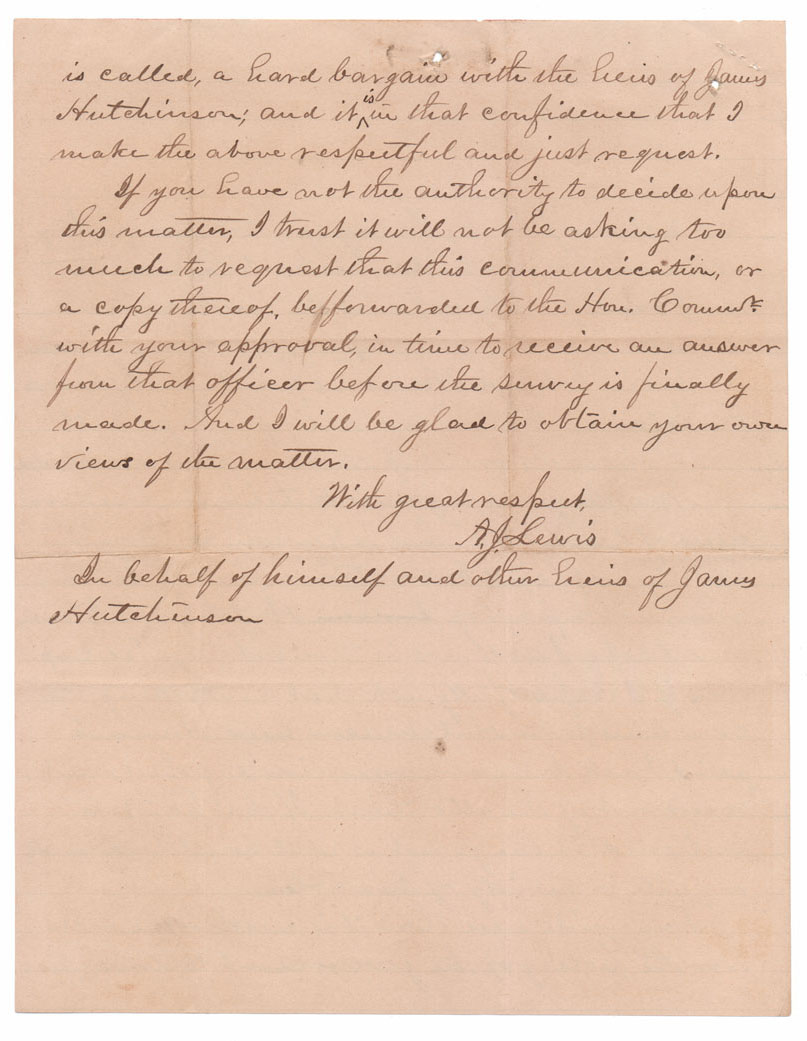 is called, a hard bargain with the heirs of James
Hutchinson; and it is in that confidence that I
make the above respectful and just request.
If you have not the authority to decide upon
this matter, I trust it will not be asking too
much to request that this communication, or
a copy thereof, be forwarded to the Hon. Commr.
with your approval, in time to receive an answer
from that officer before the survey is finally
made. And I will be glad to obtain your own
views of the matter.
With great respect,
A. J. Lewis
In behalf of himself and other heirs of James
Hutchinson